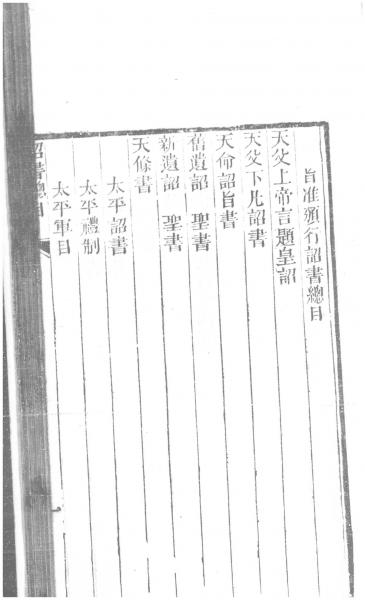 旨准頒行詔書總目
天父上帝言題皇詔
天父下凡詔書
天命詔旨書
舊遺詔 聖書
新遺詔 聖書
天條書
太平詔書
太平禮制
太平軍目
詔書總目